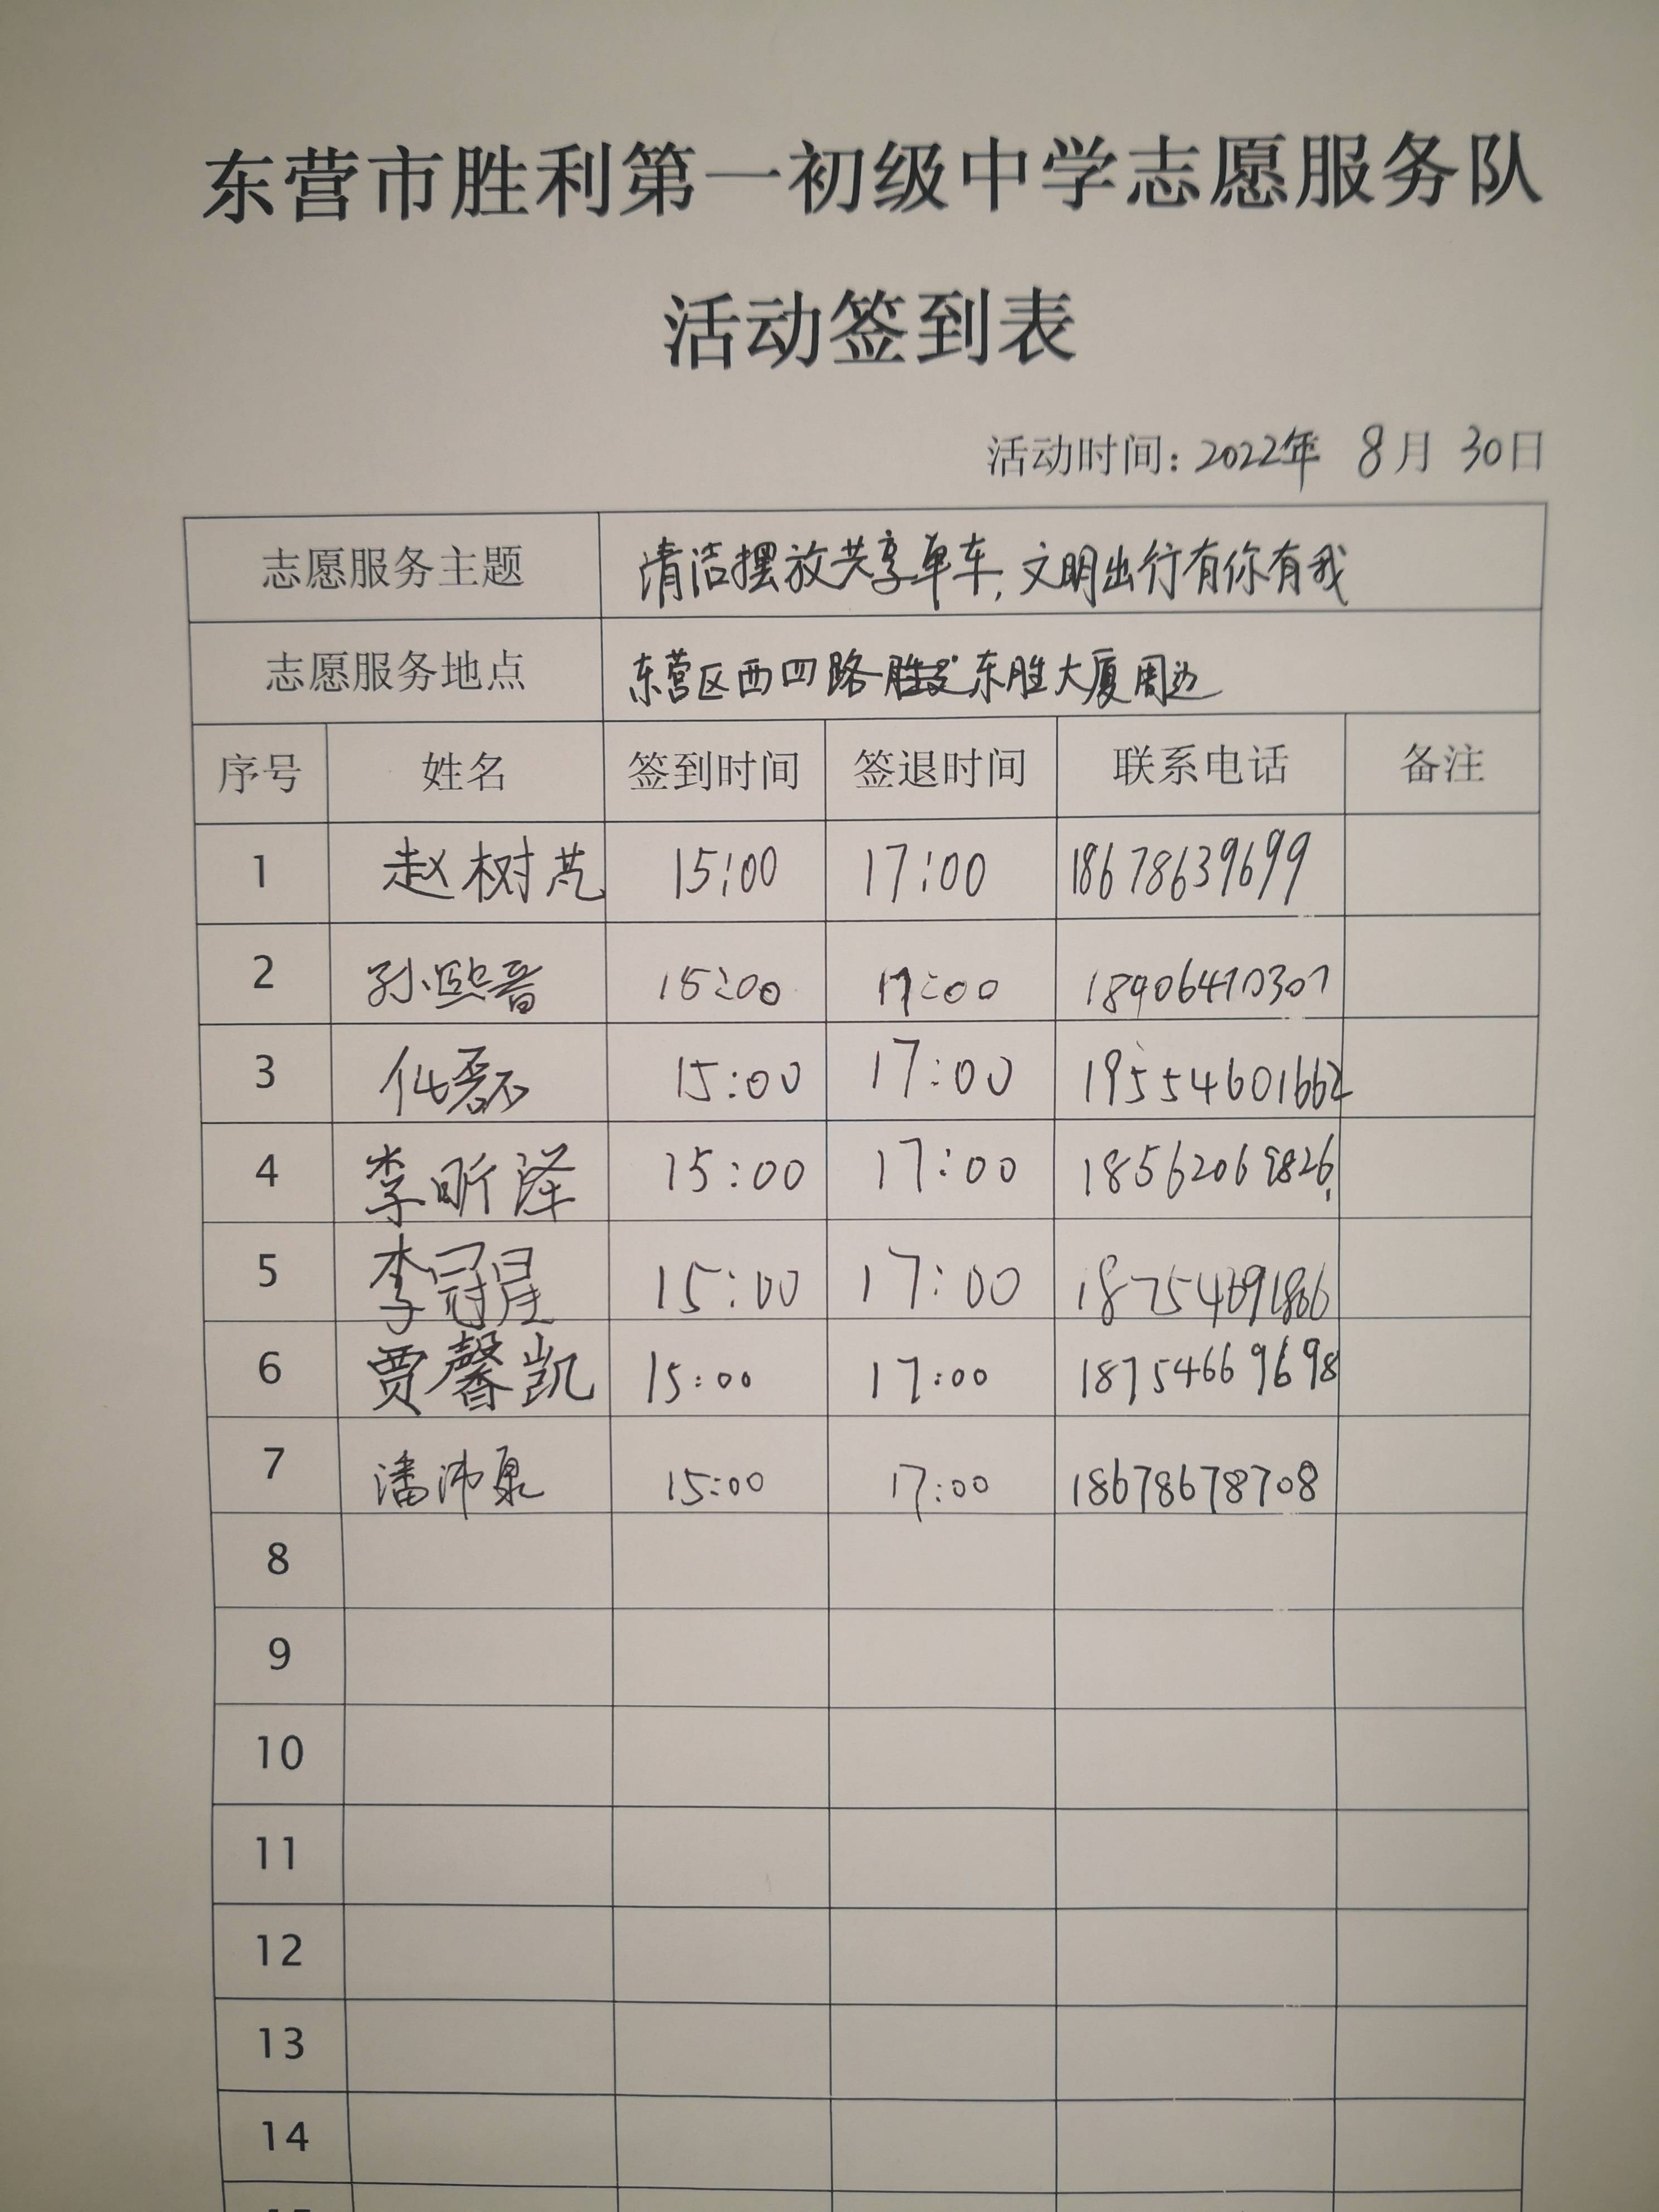 东营市胜利第一初级中学志愿服务队
活动签到表
活动时间：2022年 8月 30日
志愿服务主题 清洁摆放共享单车，文明出行有你有我
志愿服务地点 东营区西四路 东胜大厦周边
序号 姓名 签到时间 签退时间 联系电话 备注
1 赵树芃 15:00 17:00 18678639699
2 孙熙音 15:00 17:00
3 15:00 17:00 19554601662
4 李昕泽 15:00 17:00 18562069826
5 李冠星 15:00 17:00
6 贾馨凯 15:00 17:00 18754669698
7 潘沛泉 15:00 17:00 18678678708
8
9
10
11
12
13
14